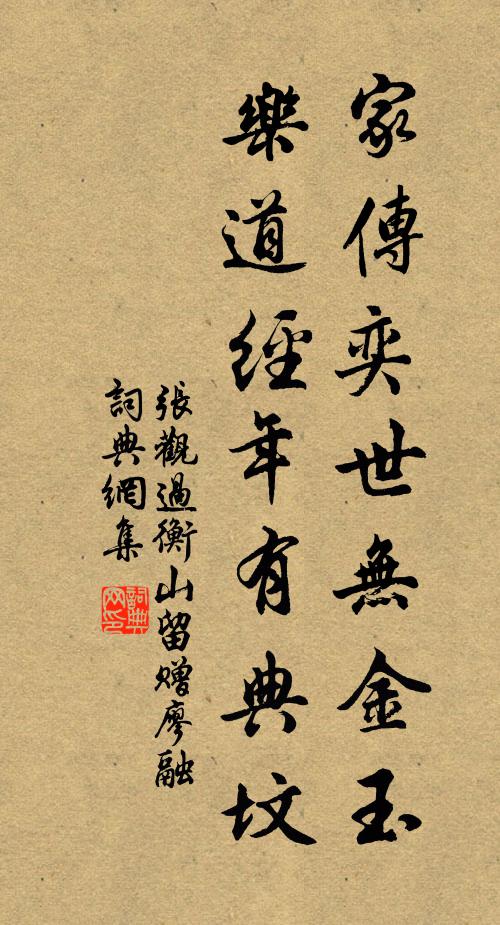 家傳奕世無金玉
樂道經年有典墳
張觀過衡山留贈廖融
詞典網集
詞典
网印